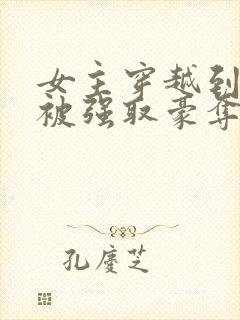 女主穿越到
被强取豪夺
孔庆芝